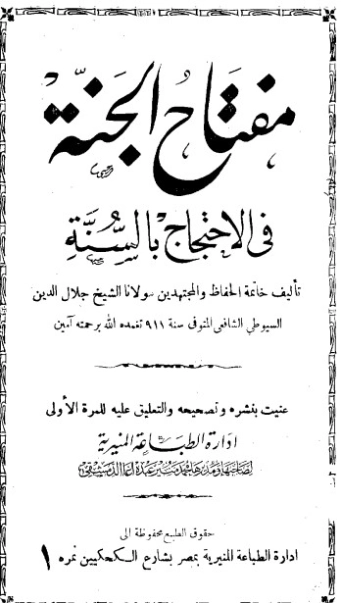 مفتاح الجنّة
في الاحتجاج بالسُّنَّةِ
تأليف خاتمة الحفاظ والمجتهدين مولانا الشيخ جلال الدين
السيوطي الشافعي المتوفى سنة ٩١١ تغمده الله برحمته آمين
عنيت بنشره وتصحيحه والتعليق عليه للمرة الأولى
ادارة الطباعة المنيرية
لصاحبها ومديرها محمد منير عبده أغا الدمشقي
حقوق الطبع محفوظة الى
ادارة الطباعة المنيرية بمصر بشارع الكحكيين نمره ١